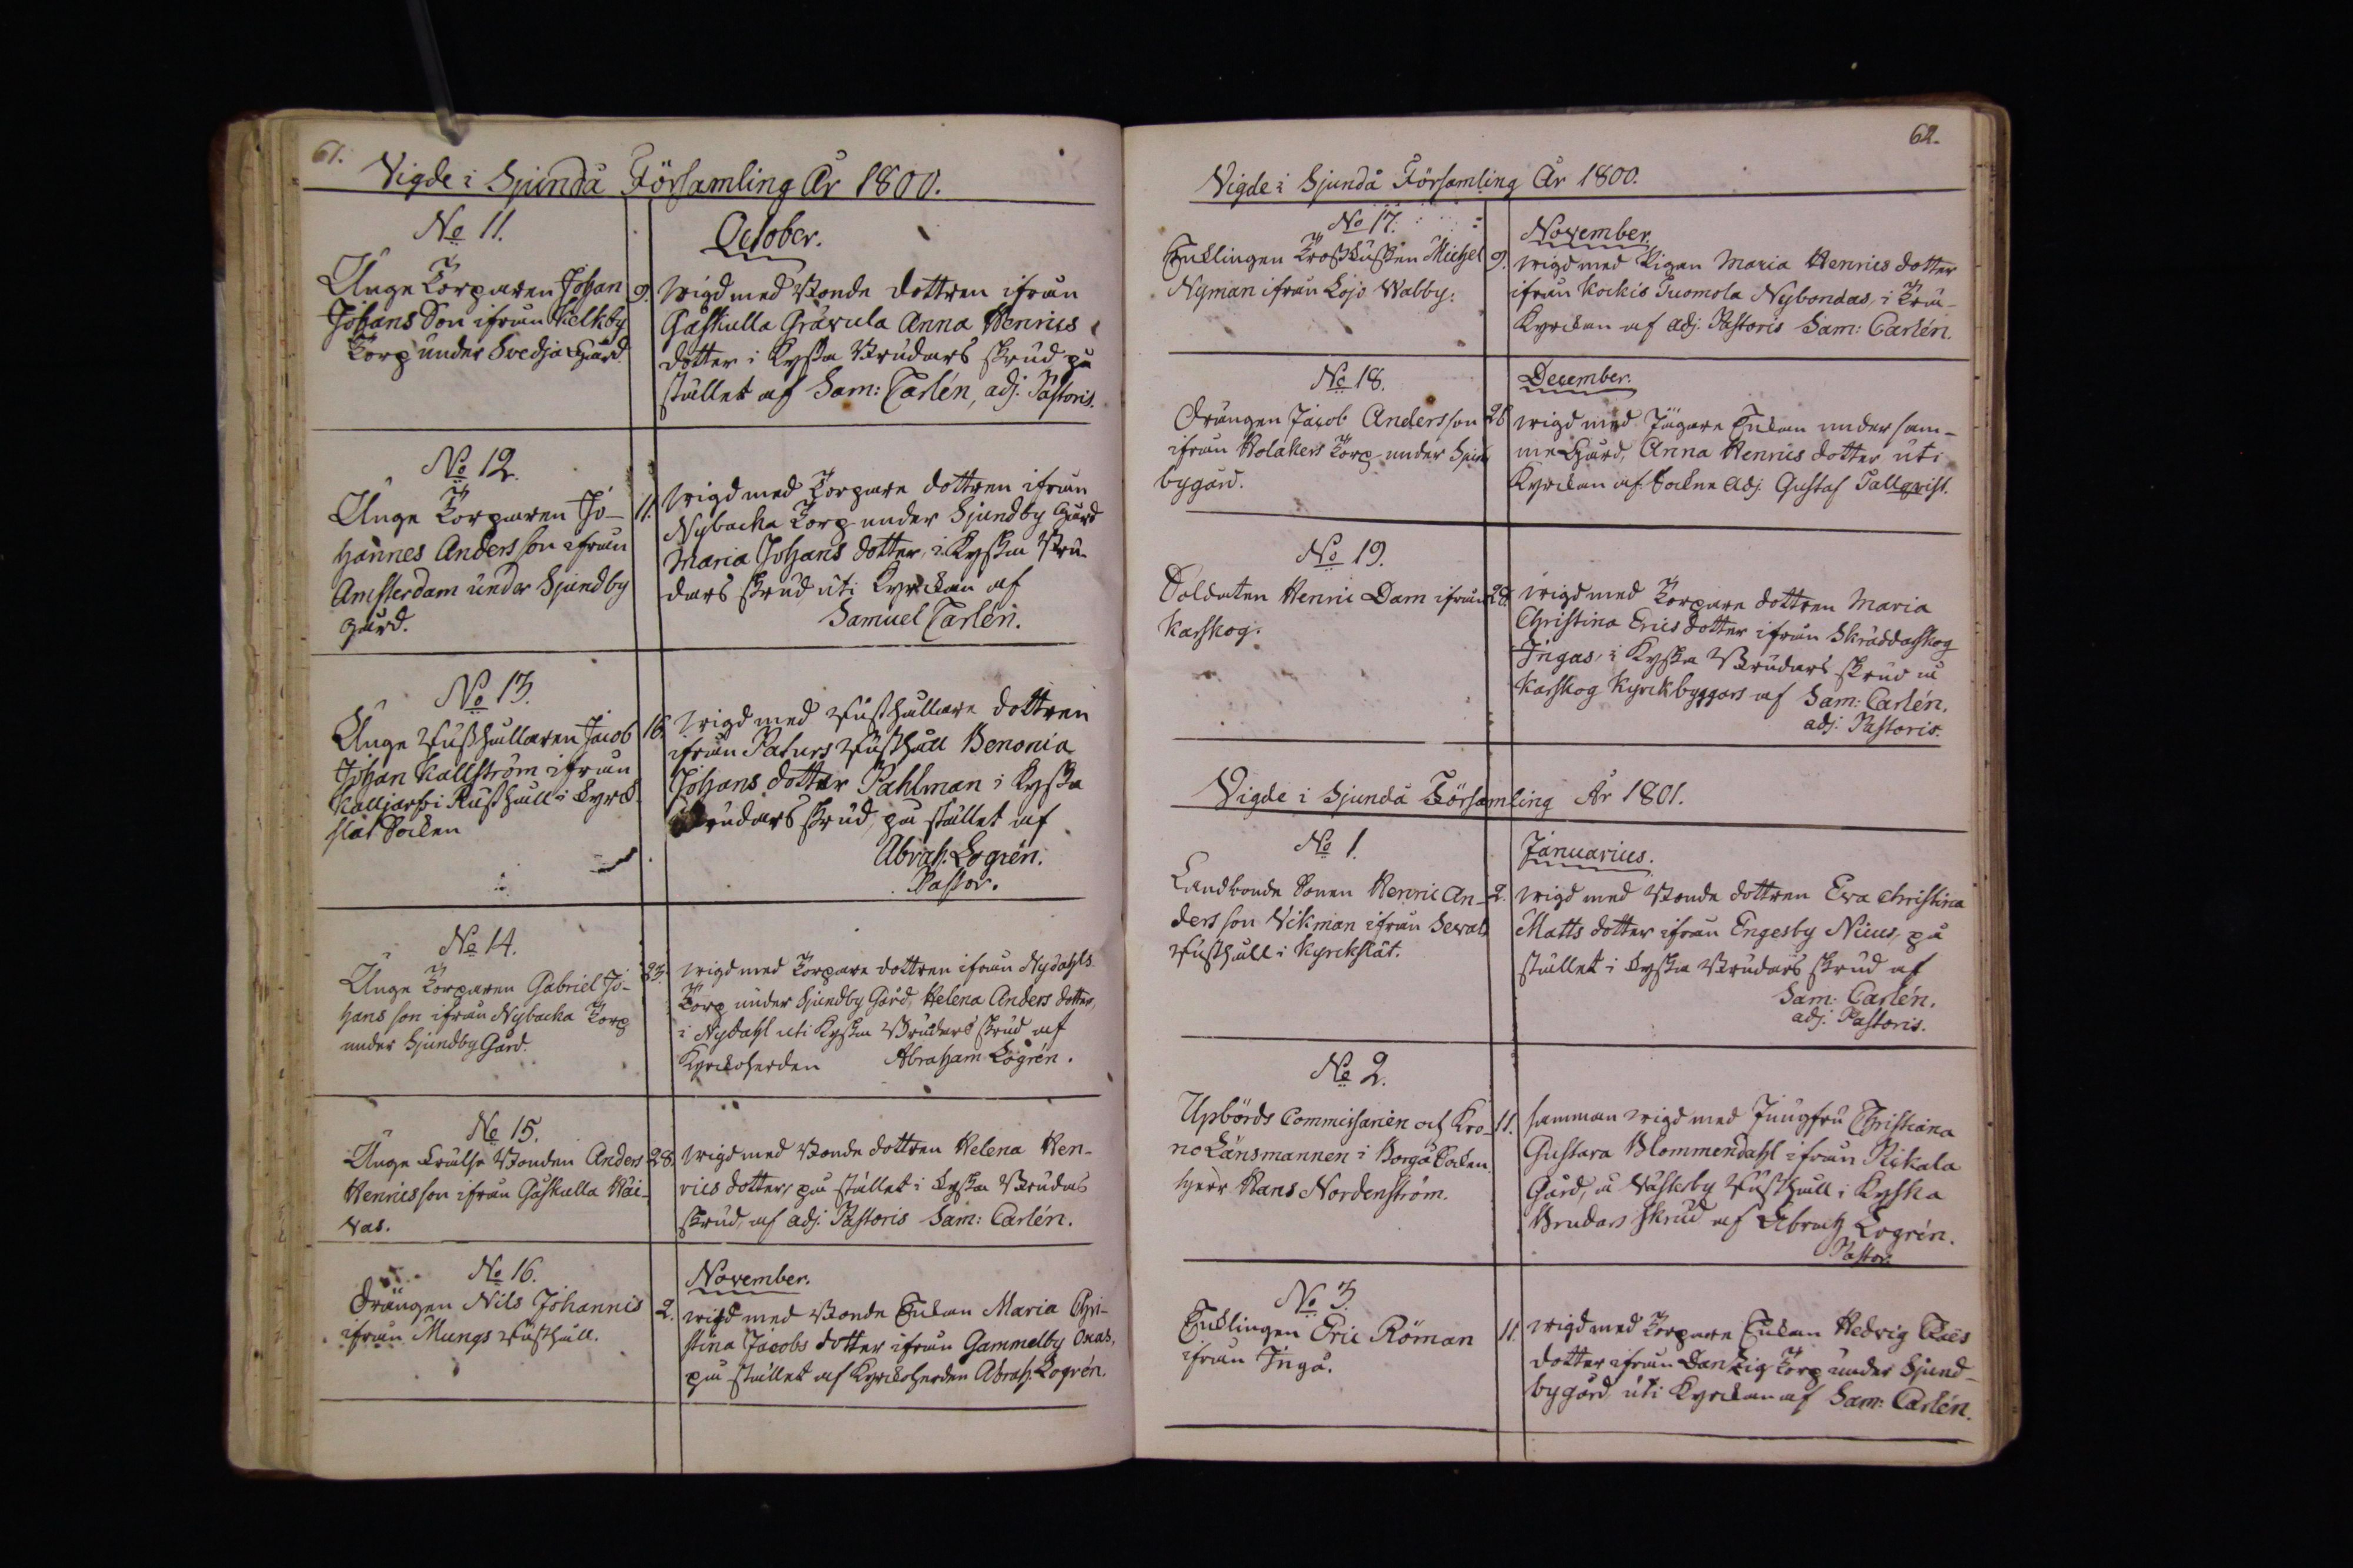 61.
Vigde i Sjundå Församling År 1800.
No 11.
October.
Unge Torparen Johan
Johans Son ifrån Kelkby
Torp under Svedja Gård.
9.
wigd med Bonde dottren ifrån
Gåskulla Gråvula Anna Henrics
dotter i Kyska Brudars skrud på
stället af Sam: Carlén, adj. Pastoris.
No 12.
Unge Torparen Jo-
hannes Andersson ifrån
Amsterdam under Sjundby
gård.
11.
wigd med Torpare dottren ifrån
Nybacka Torp under Sjundby Gård
Maria Johans dotter, i Kyska Bru-
dars skrud uti Kyrckan af
Samuel Carlén.
No 13.
Unge Rusthållaren Jacob
Johan Kallström ifrån
Kalljarfvi Rusthåll i Kyrck-
slät Socken
16.
wigd med Rusthållare dottren
ifrån Paturs Rusthåll Benonia
Johans dotter Pahlman i Kyska
Brudars skrud, på stället af
Abrah. Logrén.
Pastor.
No 14.
Unge Torparen Gabriel Jo-
hans son ifrån Nybacka Torp
under Sjundby Gård.
23.
wigd med Torpare dottren ifrån Nydahls
Torp under Sjundby Gård, Helena Anders dotter,
i Nydahl uti Kyska Brudars skrud af
Kyrckoherden Abraham Logrén.
No 15.
Unge Frälse Bonden Anders
Henricsson ifrån Gåskulla Wäi-
vas.
28.
wigd med Bonde dottren Helena Hen-
rics dotter, på stället i Kyska Brudars
skrud, af adj. Pastoris Sam: Carlén.
No 16.
November.
Drängen Nils Johannis
ifrån Mungs Rusthåll.
2.
wigd med Bonde Enkan Maria Chri-
stina Jacobs dotter ifrån Gammelby Oxas,
på stället af Kyrckoherden Abrah. Logrén.
62.
Vigde i Sjundå Församling År 1800.
No 17.
November.
Encklingen Krosskusken Michel
Nyman ifrån Lojo Wabby.
9.
wigd med Pigan Maria Henrics dotter
ifrån Kockis Tuomola Nybondas, i Trä-
Kyrckan af adj. Pastoris Sam: Carlén.
No 18.
December.
Drängen Jacob Andersson
ifrån Holakers Torp under Sjund
bygård.
26
wigd med Jägare Enkan under sam-
me Gård, Anna Henrics dotter uti
Kyrckan af Sockne Adj. Gustaf Tallqvist.
No 19.
Soldaten Henric Dam ifrån
Karskog.
28.
wigd med Torpare dottren Maria
Christina Erics dotter ifrån Skräddarskog
Ingas, i Kyska Brudars skrud å
Karskog Kyrckbyggars af Sam: Carlén.
adj. Pastoris.
Vigde i Sjundå Församling År 1801.
No 1.
Januarius.
Landbonde Sonen Henric An-
ders son Vikman ifrån Sewals
Rusthåll i Kyrckslät.
2.
wigd med Bonde dottren Eva Christina
Matts dotter ifrån Engesby Nicus, på
stället i Kyska Brudars skrud af
Sam: Carlén.
adj. Pastoris.
No 2.
Upbörds Commissarien och Kro-
no Länsmannen i Borgå Socken
Herr Hans Nordenström.
11.
samman wigd med Jungfru Christiana
Gustava Blommendahl ifrån Pickala
Gård, å Västerby Rusthåll i Kyska
Brudars skrud af Abrah Logrén.
Pastor.
No 3.
Encklingen Eric Röman
ifrån Ingå.
11.
wigd med Torpare Enkan Hedvig Claes
dotter ifrån Danzig Torp under Sjund-
bygård uti Kyrckan af Sam: Carlén.